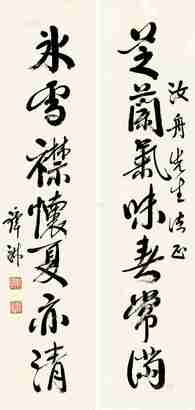 汝舟先生法正
芝蘭氣味春常滿
冰雪襟懷夏亦清